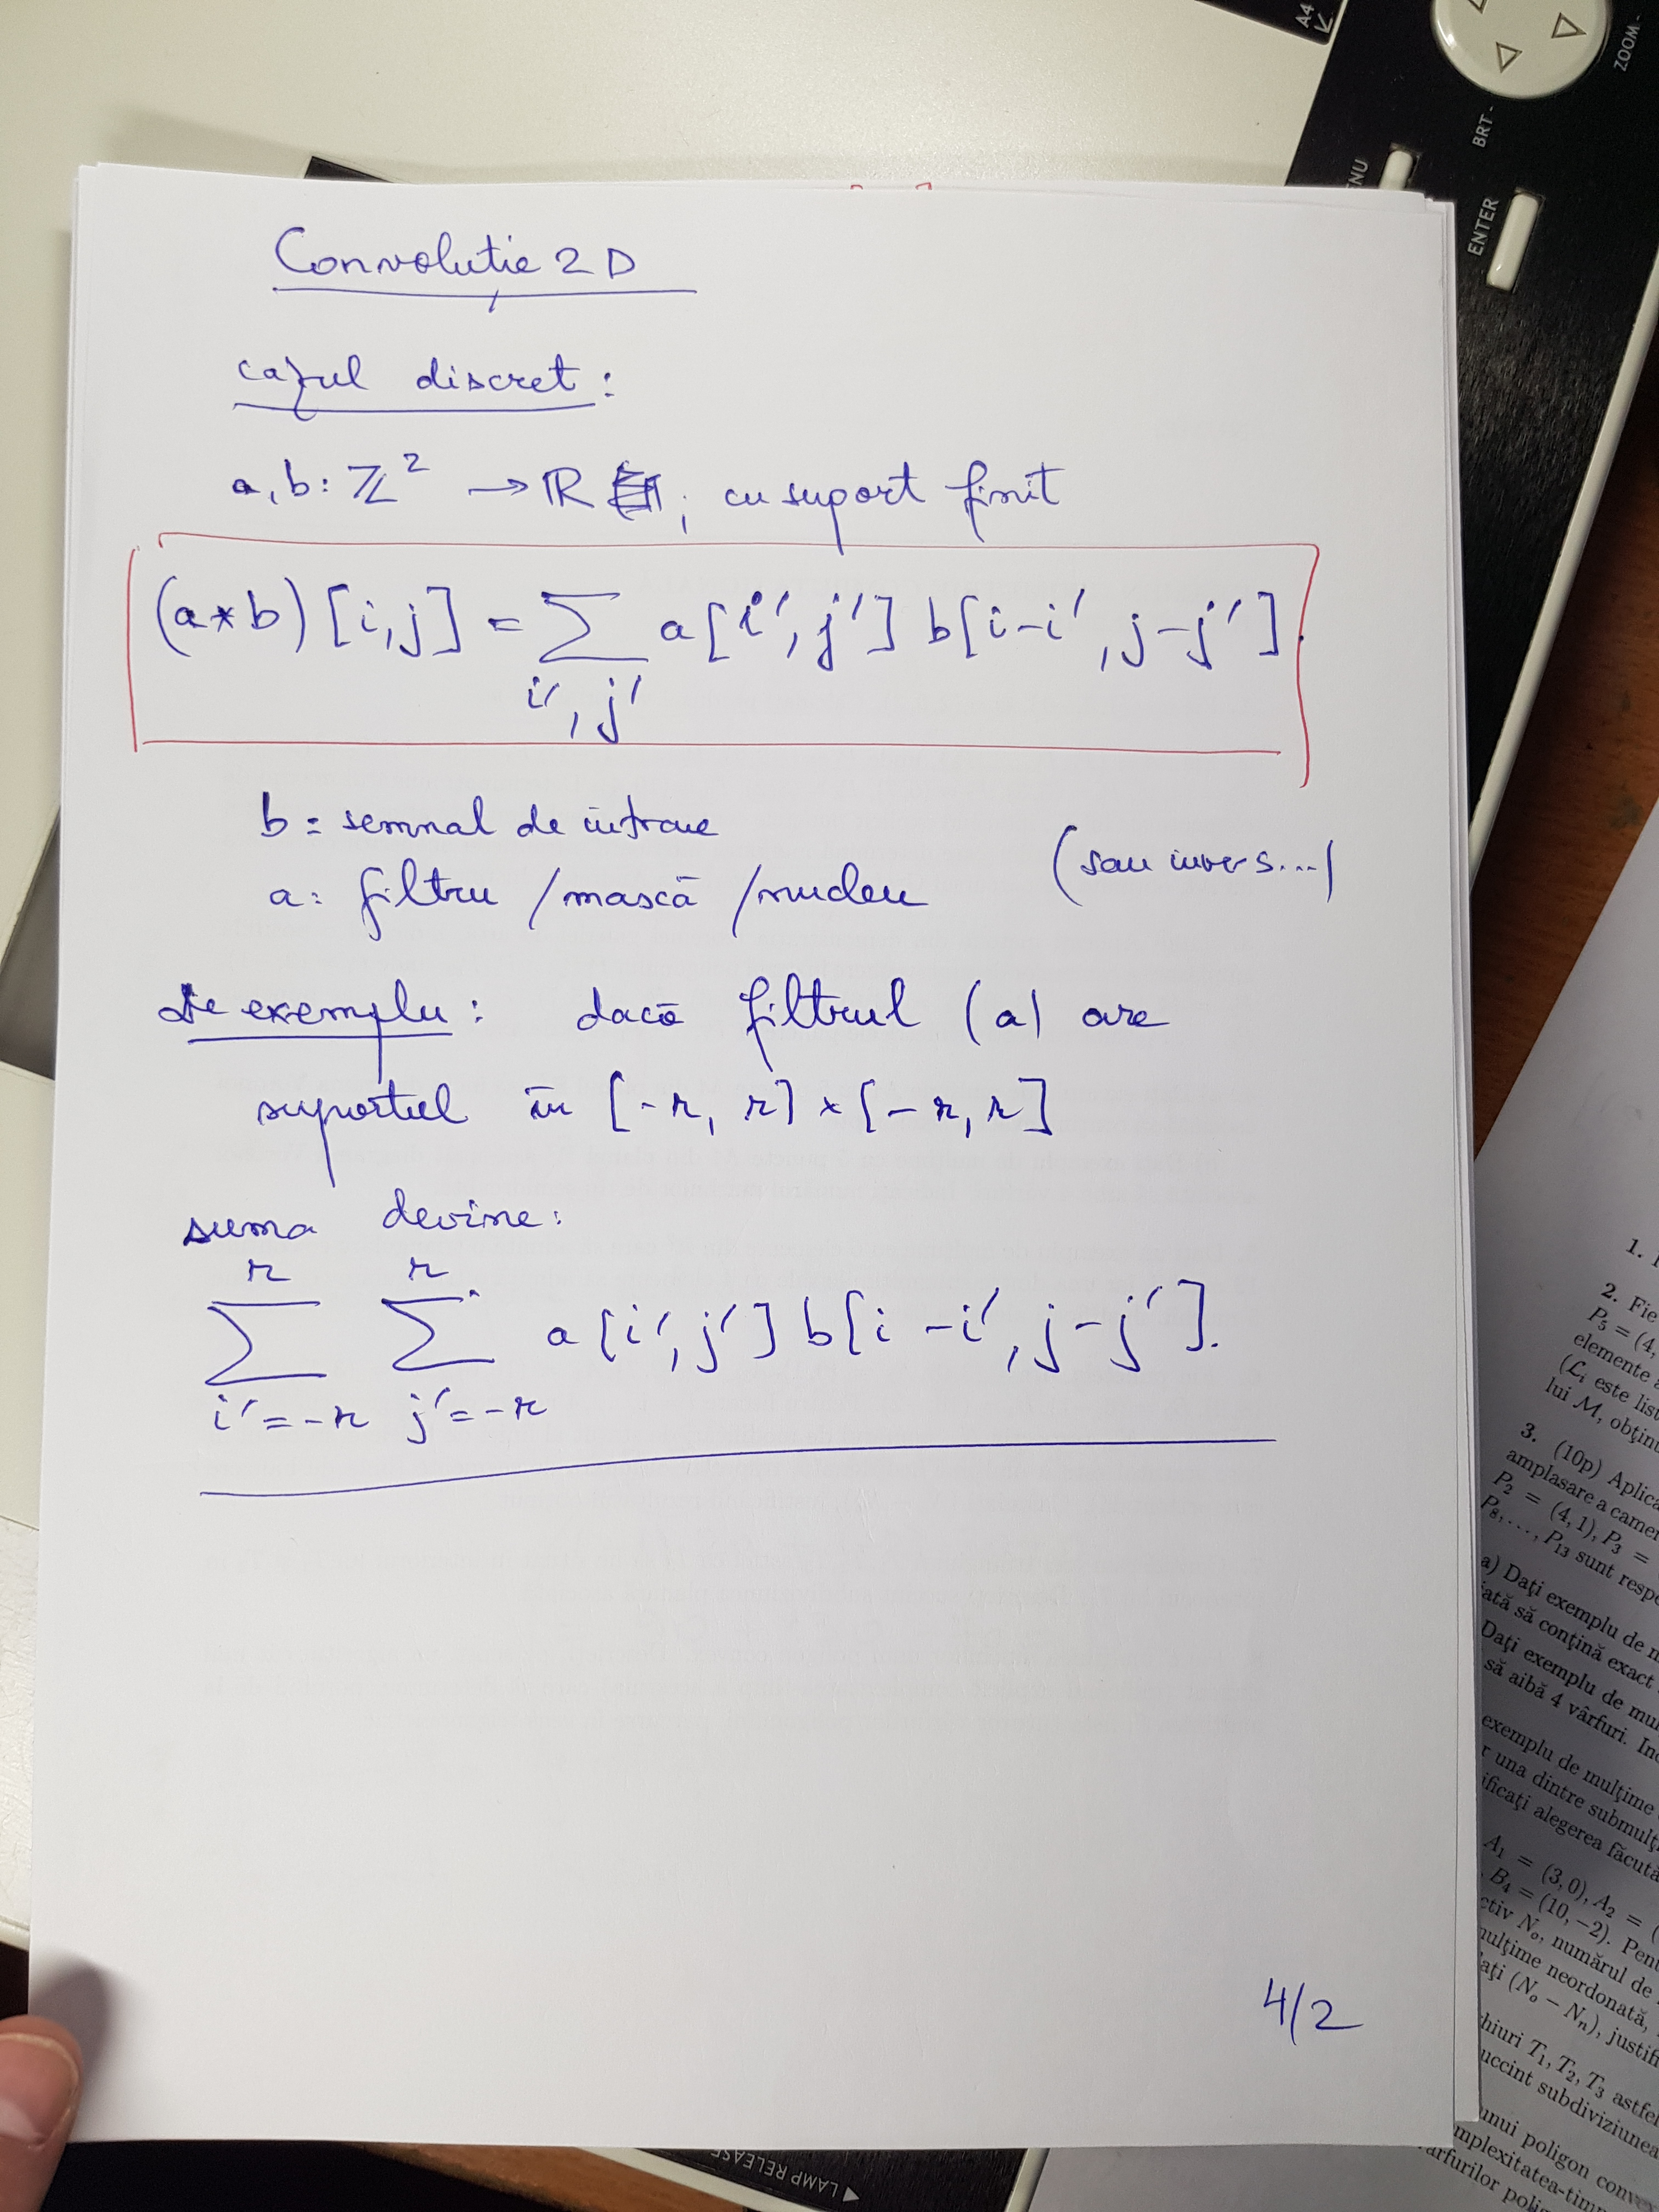 Convoluție 2D
cazul discret:
a, b: ℤ² → ℝ , cu suport finit
(a*b)[i,j] = ∑ a[i',j'] b[i-i', j-j'].
i', j'
b = semnal de intrare
a: filtru / mască / nucleu (sau invers...)
De exemplu: dacă filtrul (a) are
suportul în [-r, r] × [-r, r]
suma devine:
r r
∑ ∑ a[i',j'] b[i-i', j-j'].
i'=-r j'=-r
4/2
A4
ZOOM -
BRT -
ENTER
LAMP RELEASE
1.
2. Fie
P₅ = (4,
elemente
(ℒᵢ este list
lui ℳ, obținu
3. (10p) Aplica
amplasare a camer
P₂ = (4, 1), P₃ =
P₈, . . . , P₁₃ sunt respe
a) Dați exemplu de m
să conțină exact
Dați exemplu de mul
să aibă 4 vârfuri. Ind
exemplu de mulțime
una dintre submulț
alegerea făcută
A₁ = (3, 0), A₂ = (
B₄ = (10, −2). Pent
Nₒ, numărul de
neordonată,
(Nₒ − Nₙ), justifi
T₁, T₂, T₃ astfel
subdiviziunea
unui poligon convex